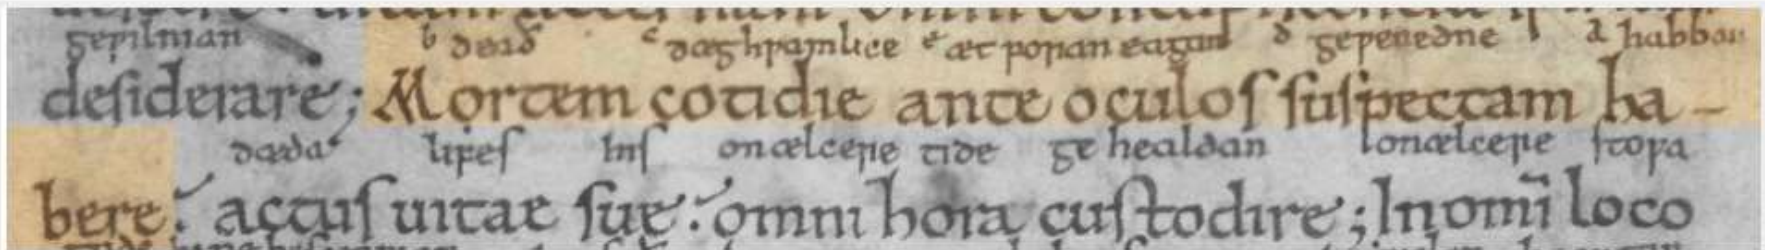 gepilnian b deað c dæghƿamlice e æt foran eagum d gepenedne a habban
desiderare; Mortem cotidie ante oculos suspectam ha-
dæda lifes his on ælcere tide gehealdan on ælcere stoƿa
bere. actus uitae sue. omni hora custodire; In omī loco